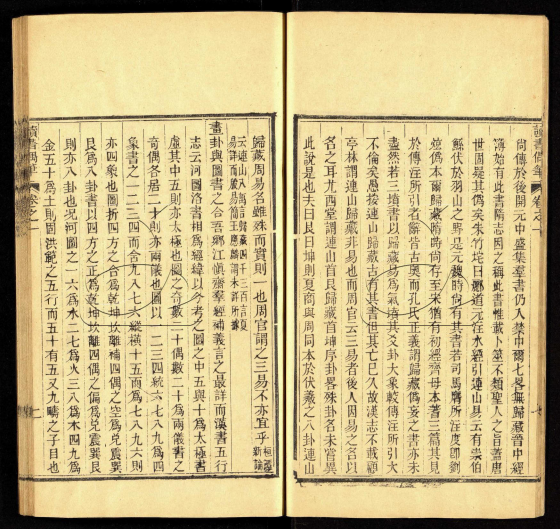 讀書偶筆
卷之一
七
尚傳於後開元中盛集羣書仍入禁中爾七畧無歸藏晉中經
簿始有此書隋志因之稱此書惟載卜筮不類聖人之旨蓋唐
世固疑其僞矣朱竹垞曰酈道元注水經引連山易云有崇伯
鯀伏於羽山之野是元魏時尚有其書若司馬膺所注度卽劉
炫僞本爾歸藏隋時尚存至宋猶有初經齊母本蓍三篇其見
於傳注所引者辭皆古奧而孔氏正義謂歸藏僞妄之書亦未
盡然若三墳書以歸藏易爲氣墳其爻卦大象較傳注所引大
不倫矣愚按連山歸藏古有其書但其亡已久故漢志不載顧
亭林謂連山歸藏非易也而周官云三易者後人因易之名以
名之耳尤西堂謂連山首艮歸藏首坤序卦畧殊卦名未嘗異
此說是也夫曰艮曰坤則夏商與周同本於伏羲之八卦連山
歸藏周易名雖殊而實則一也周官謂之三易不亦宜乎桓譚新論
云連山八萬言歸藏四千三百言夏易詳而殷易簡王應麟謂未詳所據
畫卦與圖書之合吾鄉江愼齋羣經補義言之最詳而漢書五行
志云河圖洛書相爲經緯以今考之圖之中五與十爲太極書
虛其中五則亦太極也圖之奇數二十偶數二十爲兩儀書之
奇偶各居二十則亦兩儀也圖以一二三四統六七八九爲四
象書之一二三四而含九八七六縱橫十五而爲七八九六則
亦四象也圖折四方之合爲乾坤坎離補四偶之空爲兌震巽
艮爲八卦書以四方之正爲乾坤坎離四偶之偏爲兌震巽艮
則亦八卦也況河圖之一六爲水二七爲火三八爲木四九爲
金五十爲土則固洪範之五行而五十有五又九疇之子目也
讀書偶筆
卷之一
七